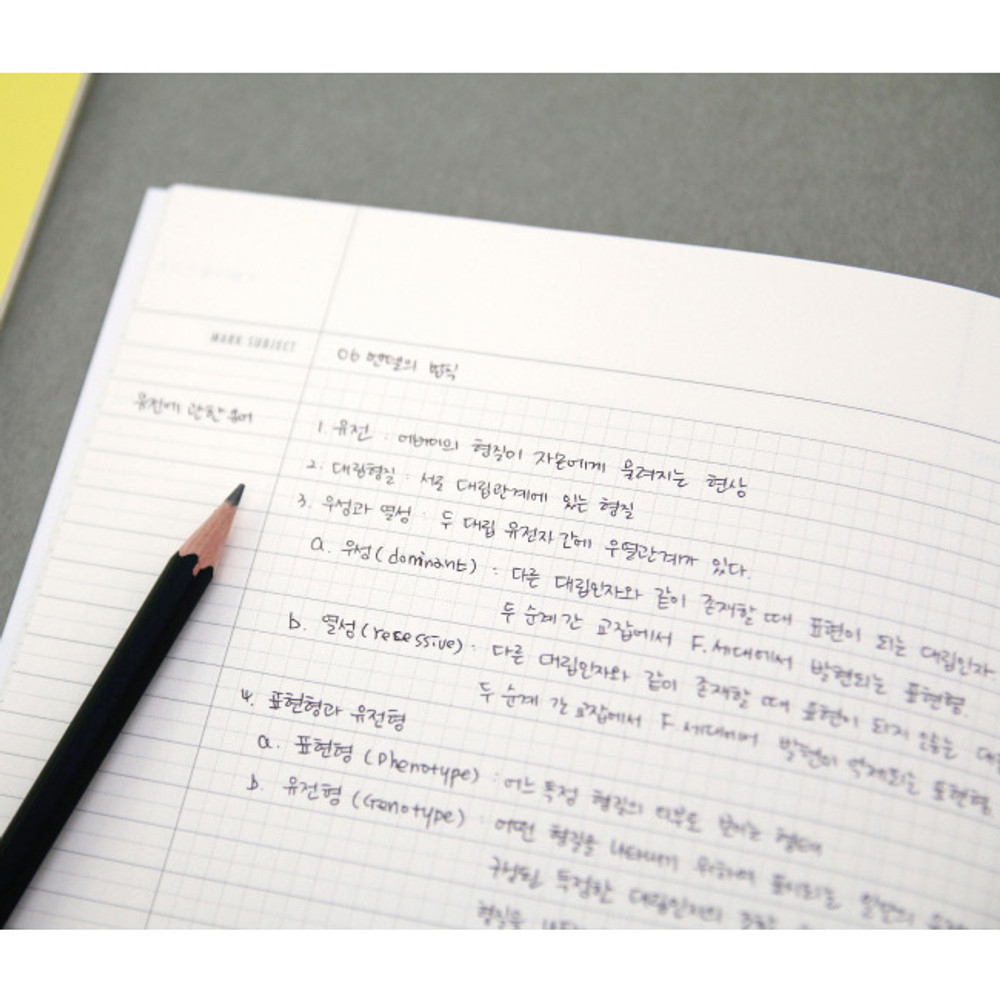 MARK SUBJECT
06 멘델의 법칙
유전에 관한 용어
1. 유전 : 어버이의 형질이 자손에게 물려지는 현상
2. 대립형질 : 서로 대립관계에 있는 형질
3. 우성과 열성 : 두 대립 유전자 간에 우열관계가 있다.
a. 우성(dominant) : 다른 대립인자와 같이 존재할 때 표현이 되는 대립인자
두 순계 간 교잡에서 F.세대에서 발현되는 표현형.
b. 열성(recessive) : 다른 대립인자와 같이 존재할 때 표현이 되지 않는
두 순계 간 교잡에서 F.세대에서 발현이 억제되는 표현형
4. 표현형과 유전형
a. 표현형 (Phenotype) : 어느 특정 형질의 외부로 보이는 형태
b. 유전형 (Genotype) : 어떤 형질을 나타내기 위하여 표시되는 일반의
구성된 특정한 대립인자의 조합
형질을